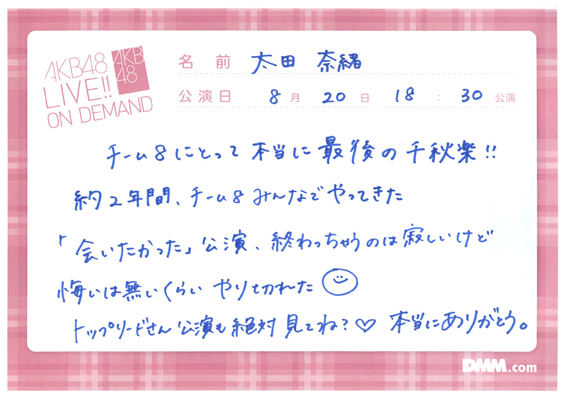 AKB48
LIVE!!
ON DEMAND
AKB
48
名前 太田 奈緒
公演日 8月20日 18:30公演
チーム8にとって本当に最後の千秋楽!!
約2年間、チーム8みんなでやってきた
「会いたかった」公演、終わっちゃうのは寂しいけど
悔いは無いくらいやり切れた
トップリードさん公演も絶対見てね?♡ 本当にありがとう。
DMM.com